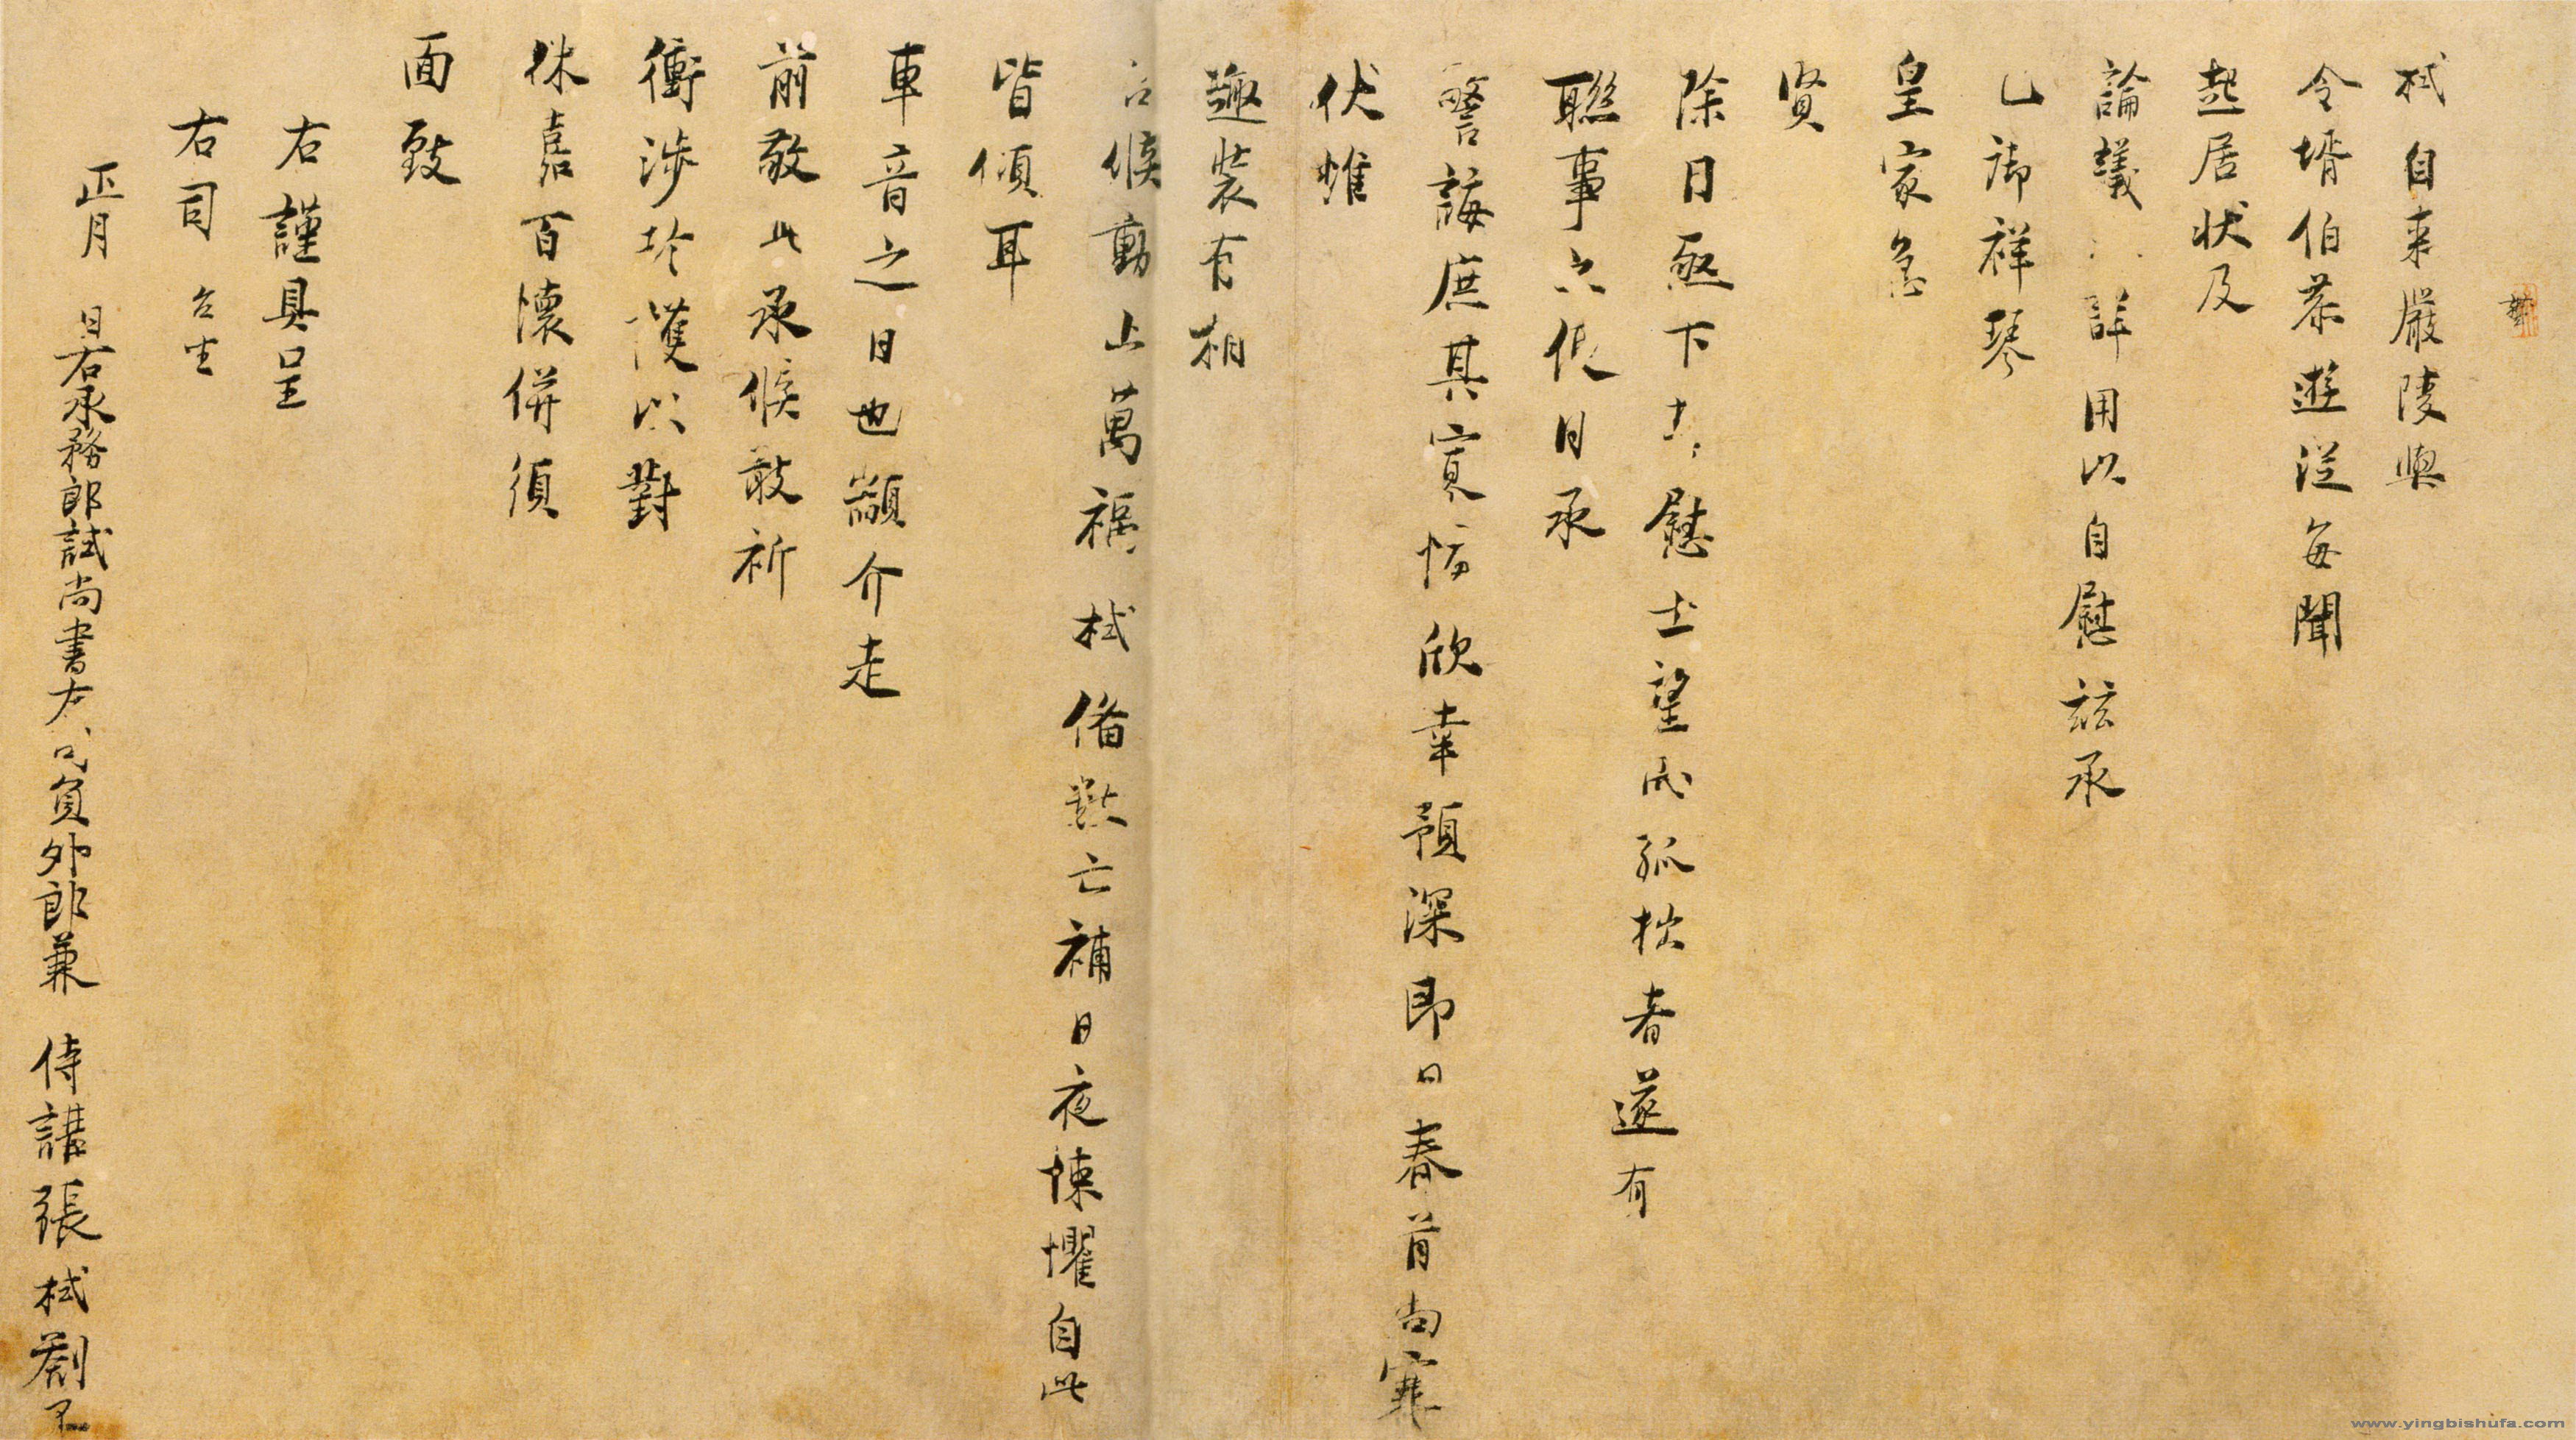 栻自来嚴陵與
令壻伯恭遊從每聞
起居狀及
論議詳用以自慰兹承
已御祥琴
皇家急
賢
除日亟下慰士望而孤拙者遂有
聯事之便日承
警誨庶其寡悔欣幸預深即日春首尚寒
伏惟
趣裝有相
台候動止萬福栻備數亡補日夜悚懼自此
皆傾耳
車音之日也顓介走
前敬此承候敢祈
衝涉珍護以對
休嘉百懷併須
面致
右謹具呈
右司 台坐
正月 日右承務郎試尚書左司員外郎兼 侍講張栻劄子
www.yingbishufa.com